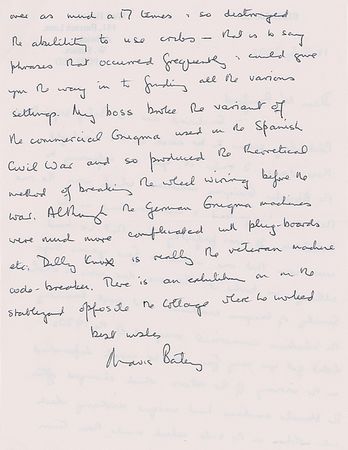 over as much a 17 times & so destroyed
the ability to use cribs — that is to say
phrases that occurred frequently & could give
you the way in to finding all the various
settings. My boss broke the variant of
the commercial Enigma used in the Spanish
Civil War and so produced the theoretical
method of breaking the wheel wiring before the
war. Although the German Enigma machines
were much more complicated with plug-boards
etc. Dilly Knox is really the veteran machine
code-breaker. There is an exhibition on in the
stableyard opposite the cottage where he worked
best wishes
Mavis Batey